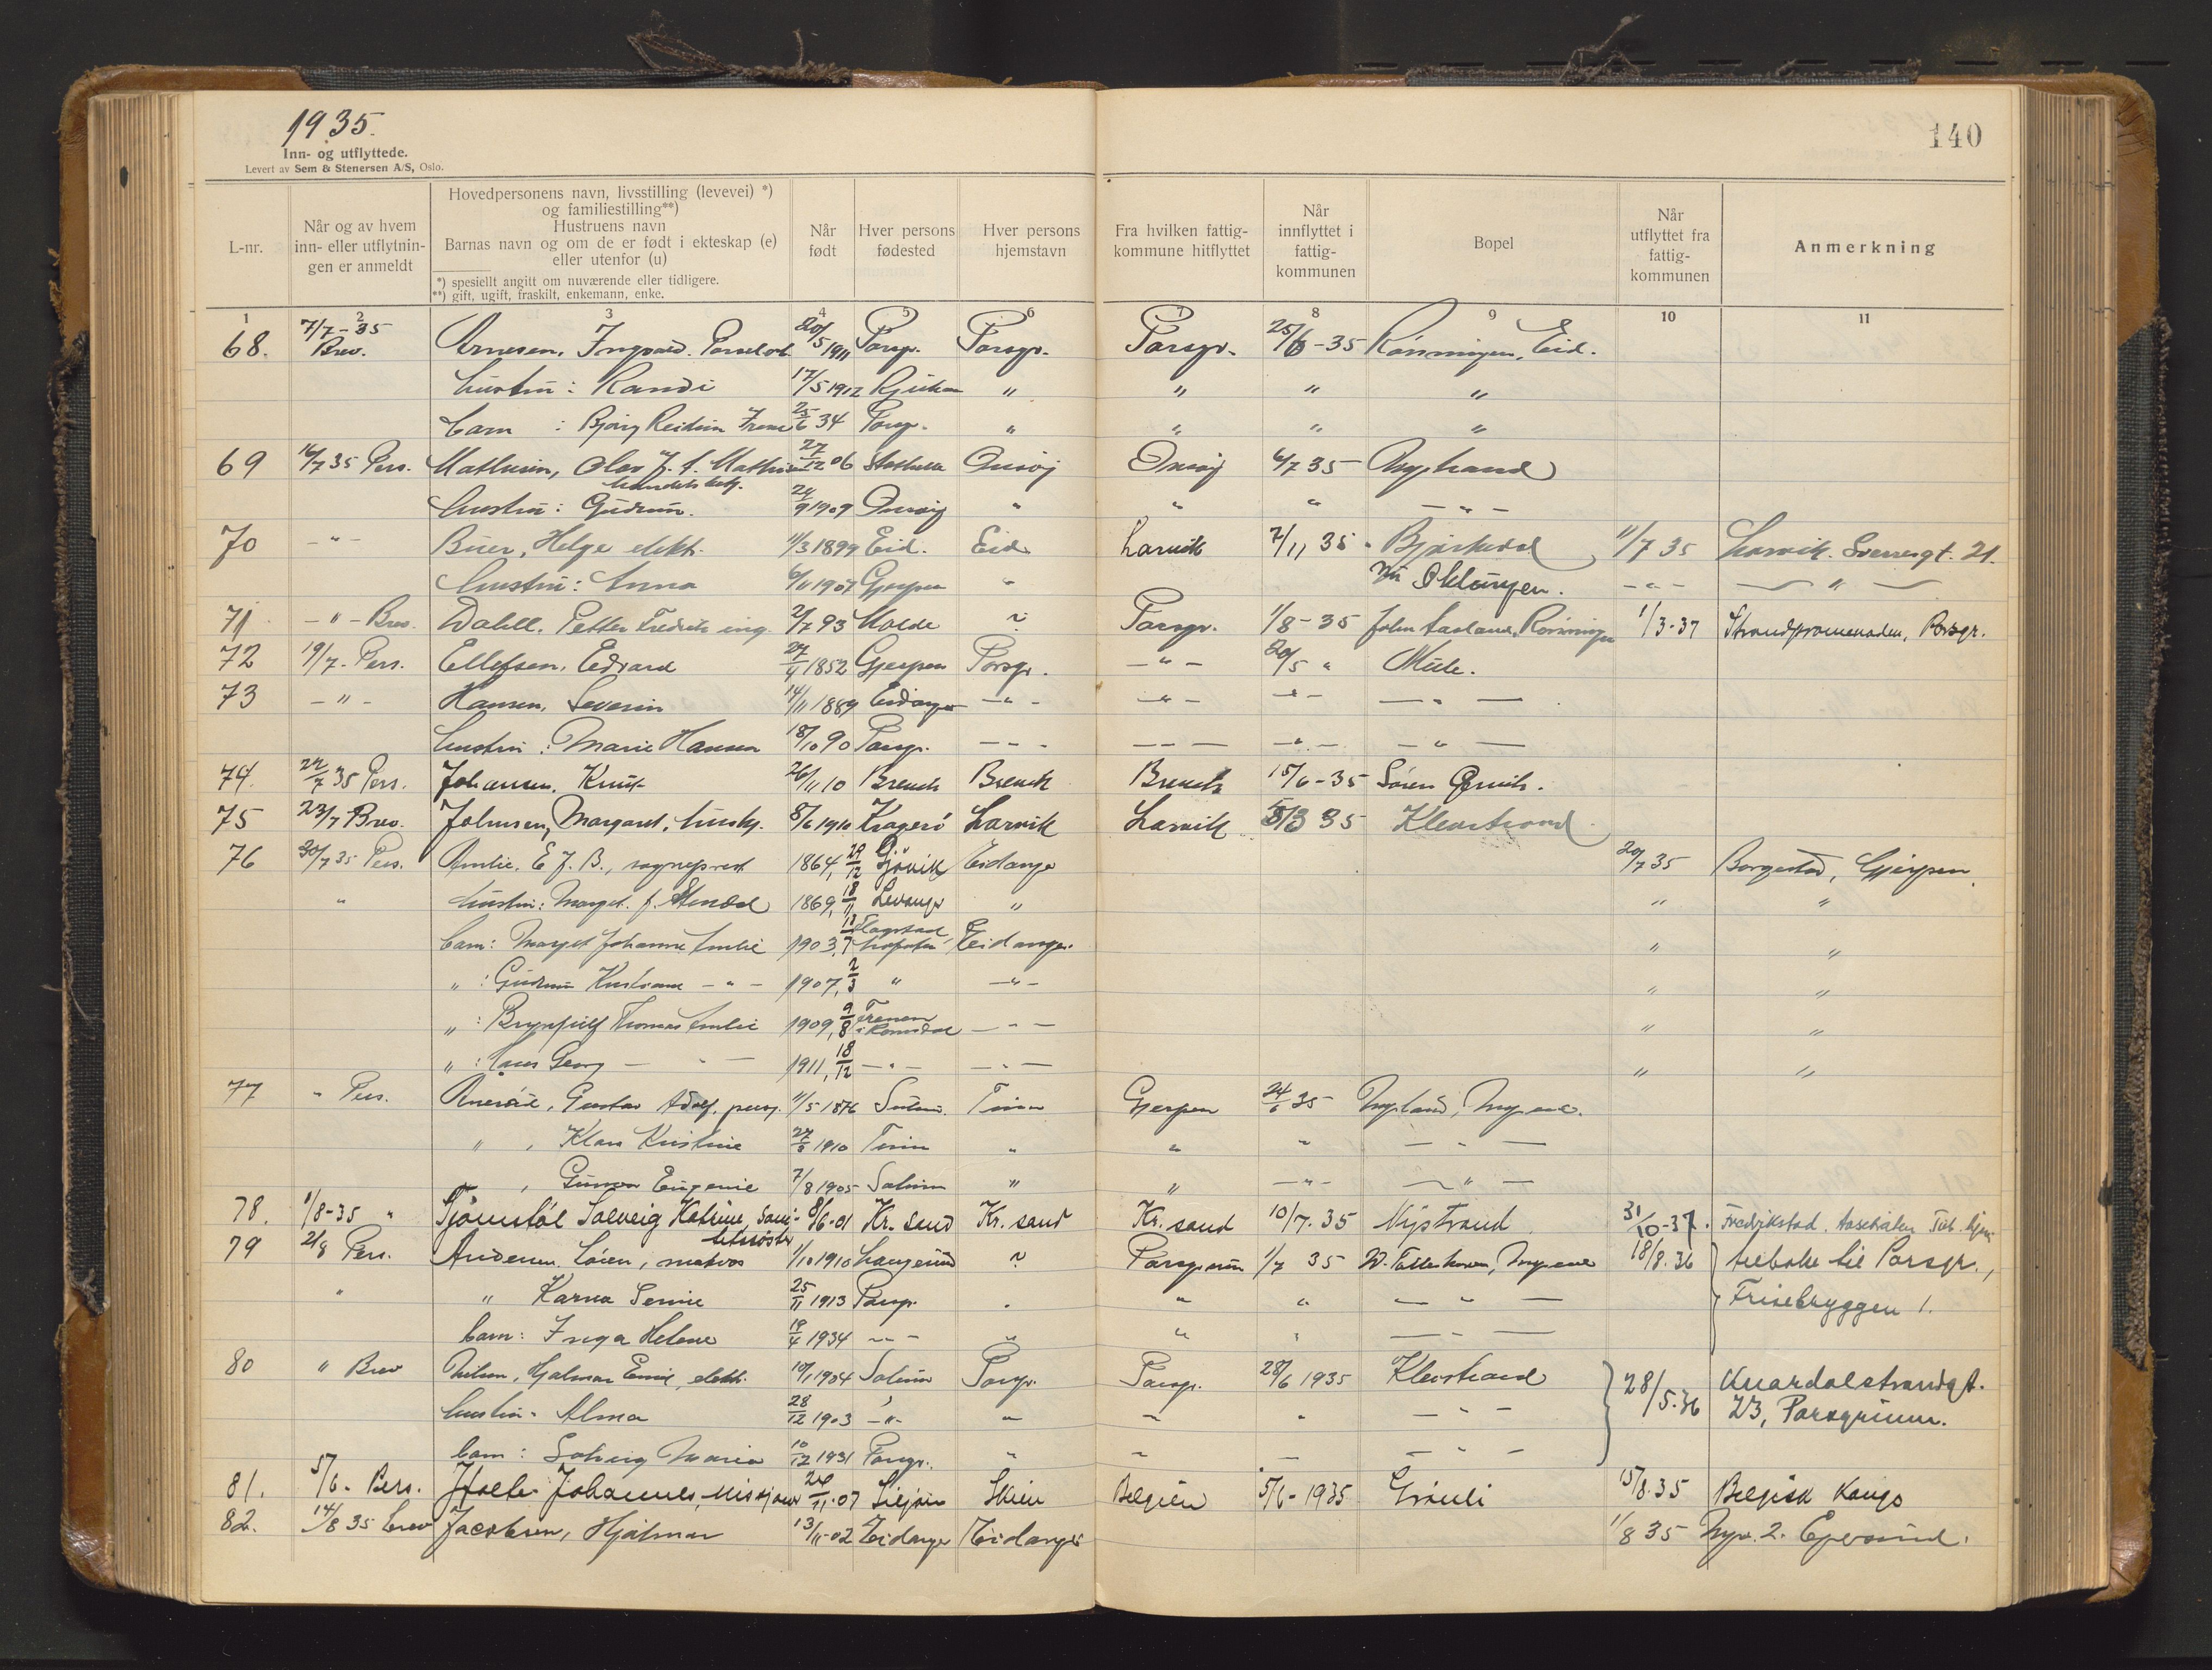 1935.
140
Inn- og utflyttede.
Levert av Sem & Stenersen A/S, Oslo.
L-nr.
Når og av hvem inn- eller utflytningen er anmeldt
Hovedpersonens navn, livsstilling (levevei) *) og familiestilling**) Hustruens navn Barnas navn og om de er født i ekteskap (e) eller utenfor (u)
*) spesiellt angitt om nuværende eller tidligere.
**) gift, ugift, fraskilt, enkemann, enke.
Når født
Hver persons fødested
Hver persons hjemstavn
Fra hvilken fattigkommune hitflyttet
Når innflyttet i fattigkommunen
Bopel
Når utflyttet fra fattigkommunen
Anmerkning
1 2 3 4 5 6 7 8 9 10 11
68. 7/7-35 Brev. Arnesen, Ingvald. 20/5 1911 Porsgr. Porsgr. Porsgr. 25/6-35 Rønningen, Eid.
hustru: Randi 17/5 1912 Rjukan " " " "
barn : Bjørg Reidun Irene 25/6 34 Porsgr. " " " "
69 16/7 35 Pers. Mathisen, Olav 27/12 06 Stathelle Onsøy Onsøy 6/7 35 Nystrand
hustru: Gudrun. 24/9 1909 Onsøy " " " - " -
70 - " - Buer, Helge elekt. 11/3 1899 Eid. Eid. Larvik 7/11 35 Bjørkedal 11/7 35 Larvik. Sverresgt. 21.
hustru: Anna 6/11 1907 Gjerpen " Oklungen. - " - - " -
71 - " - Brev. Dahll, Petter Fredrik ing. 2/7 93 Molde ? Porsgr. 1/8-35 John Aasland, Rønningen 1/3-37 Strandpromenaden, Porsgr.
72 19/7. Pers. Ellefsen, Edvard 27/4 1852 Gjerpen Porsgr. - " - 20/5 " Mule.
73 - " - Hansen, Severin 14/11 1889 Eidanger - " - - " - - " - - " -
hustru: Marie Hansen 18/10 90 Porsgr. - " - - " - - " - - " -
74. 22/7 35 Pers. Johansen, Knut 26/11 10 Brevik Brevik Brevik 15/6-35 Søren
75 23/7 Brev. Johnsen, Margaret, hush. 8/6 1910 Kragerø Larvik Larvik 5/3 35 Klevstrand
76 30/7 35 Pers. Amlie, E. J. B., sogneprest 1864, 29/12 Gjøvik Eidanger 20/7 35 Borgestad, Gjerpen.
" hustru: Margit. f. 1869, 18/11 Levanger " " "
barn: Margit Johanne Amlie 1903, 7 Flagstad Lofoten Eidanger. " "
" : Gudrun - " - 1907, 2/3 " - " - " "
" : Brynjulf Thomas Amlie 1909, 9/8 Frænen i Romsdal - " - " "
" : Hans Georg - " - 1911, 18/12 - " - - " - " "
77 " Pers. Gustav Adolf, 11/5 1876 Solum Tinn Gjerpen 24/6 35
" , Klara Kristine 27/3 1910 Tinn " " " - " -
, Gunvor Eugenie 7/8 1905 Solum " " - " - - " -
78. 1/8-35 " Tjømstøl Solveig Katrine, 8/6-01 Kr. sand Kr. sand Kr. sand 10/7. 35 Nystrand. 31/10-37. Fredrikstad.
79 2/8 Pers. Andersen, Søren, matros 1/10 1910 Langesund ? Porsgrunn 1/7 35 18/8. 36 tilbake til Porsgr.,
" " Karna Senine 25/11 1913 Porsgr. " " " - " - Frisebryggen 1.
barn: Inga Helene 19/4 1934 - " - " " " - " -
80 " Brev Nilsen, Hjalmar Emil, elekt. 10/1 1904 Solum Porsgr. Porsgr. 28/6 1935 Klevstrand 28/5.36 Knardalstrandgt.
hustru: Alma 28/12 1903 - " - " " " - " - 23, Porsgrunn.
barn: Solveig Maria 10/12 1931 Porsgr. " " - " -
81. 5/6. Pers. Johannes, Misjonær 07 Siljan Skien Belgien 5/6-1935 Grønli 15/8.35 Belgisk Kongo
82. 14/8 35 brev Jacobsen, Hjalmar 13/11-02 Eidanger Eidanger 1/8 35 Egersund.